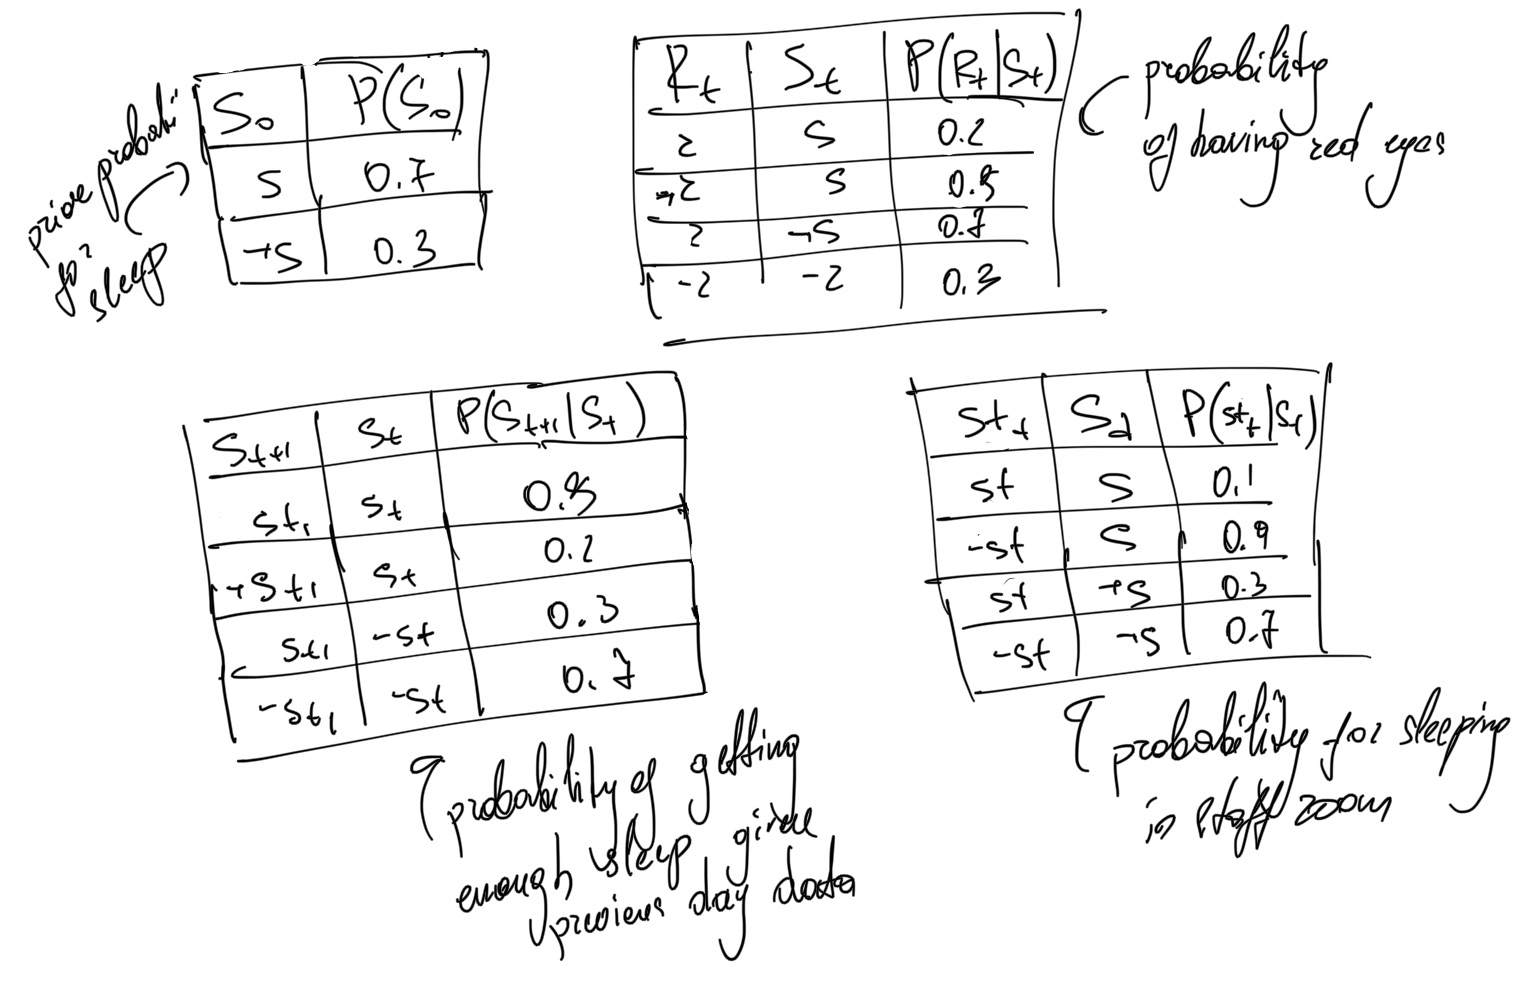 prior probabi
for
sleep
S₀ P(S₀)
S 0.7
¬S 0.3
Rₜ Sₜ P(Rₜ|Sₜ)
r S 0.2
¬r S 0.8
r ¬S 0.7
-r -r 0.3
probability
of having red eyes
Sₜ₊₁ Sₜ P(Sₜ₊₁|Sₜ)
Sₜ₁ Sₜ 0.8
¬Sₜ₁ Sₜ 0.2
Sₜ₁ -Sₜ 0.3
-Sₜ₁ -Sₜ 0.7
probability of getting
enough sleep given
previous day data
stₜ P(stₜ|Sₜ)
st S 0.1
-st S 0.9
st ¬S 0.3
-st ¬S 0.7
probability for sleeping
in room